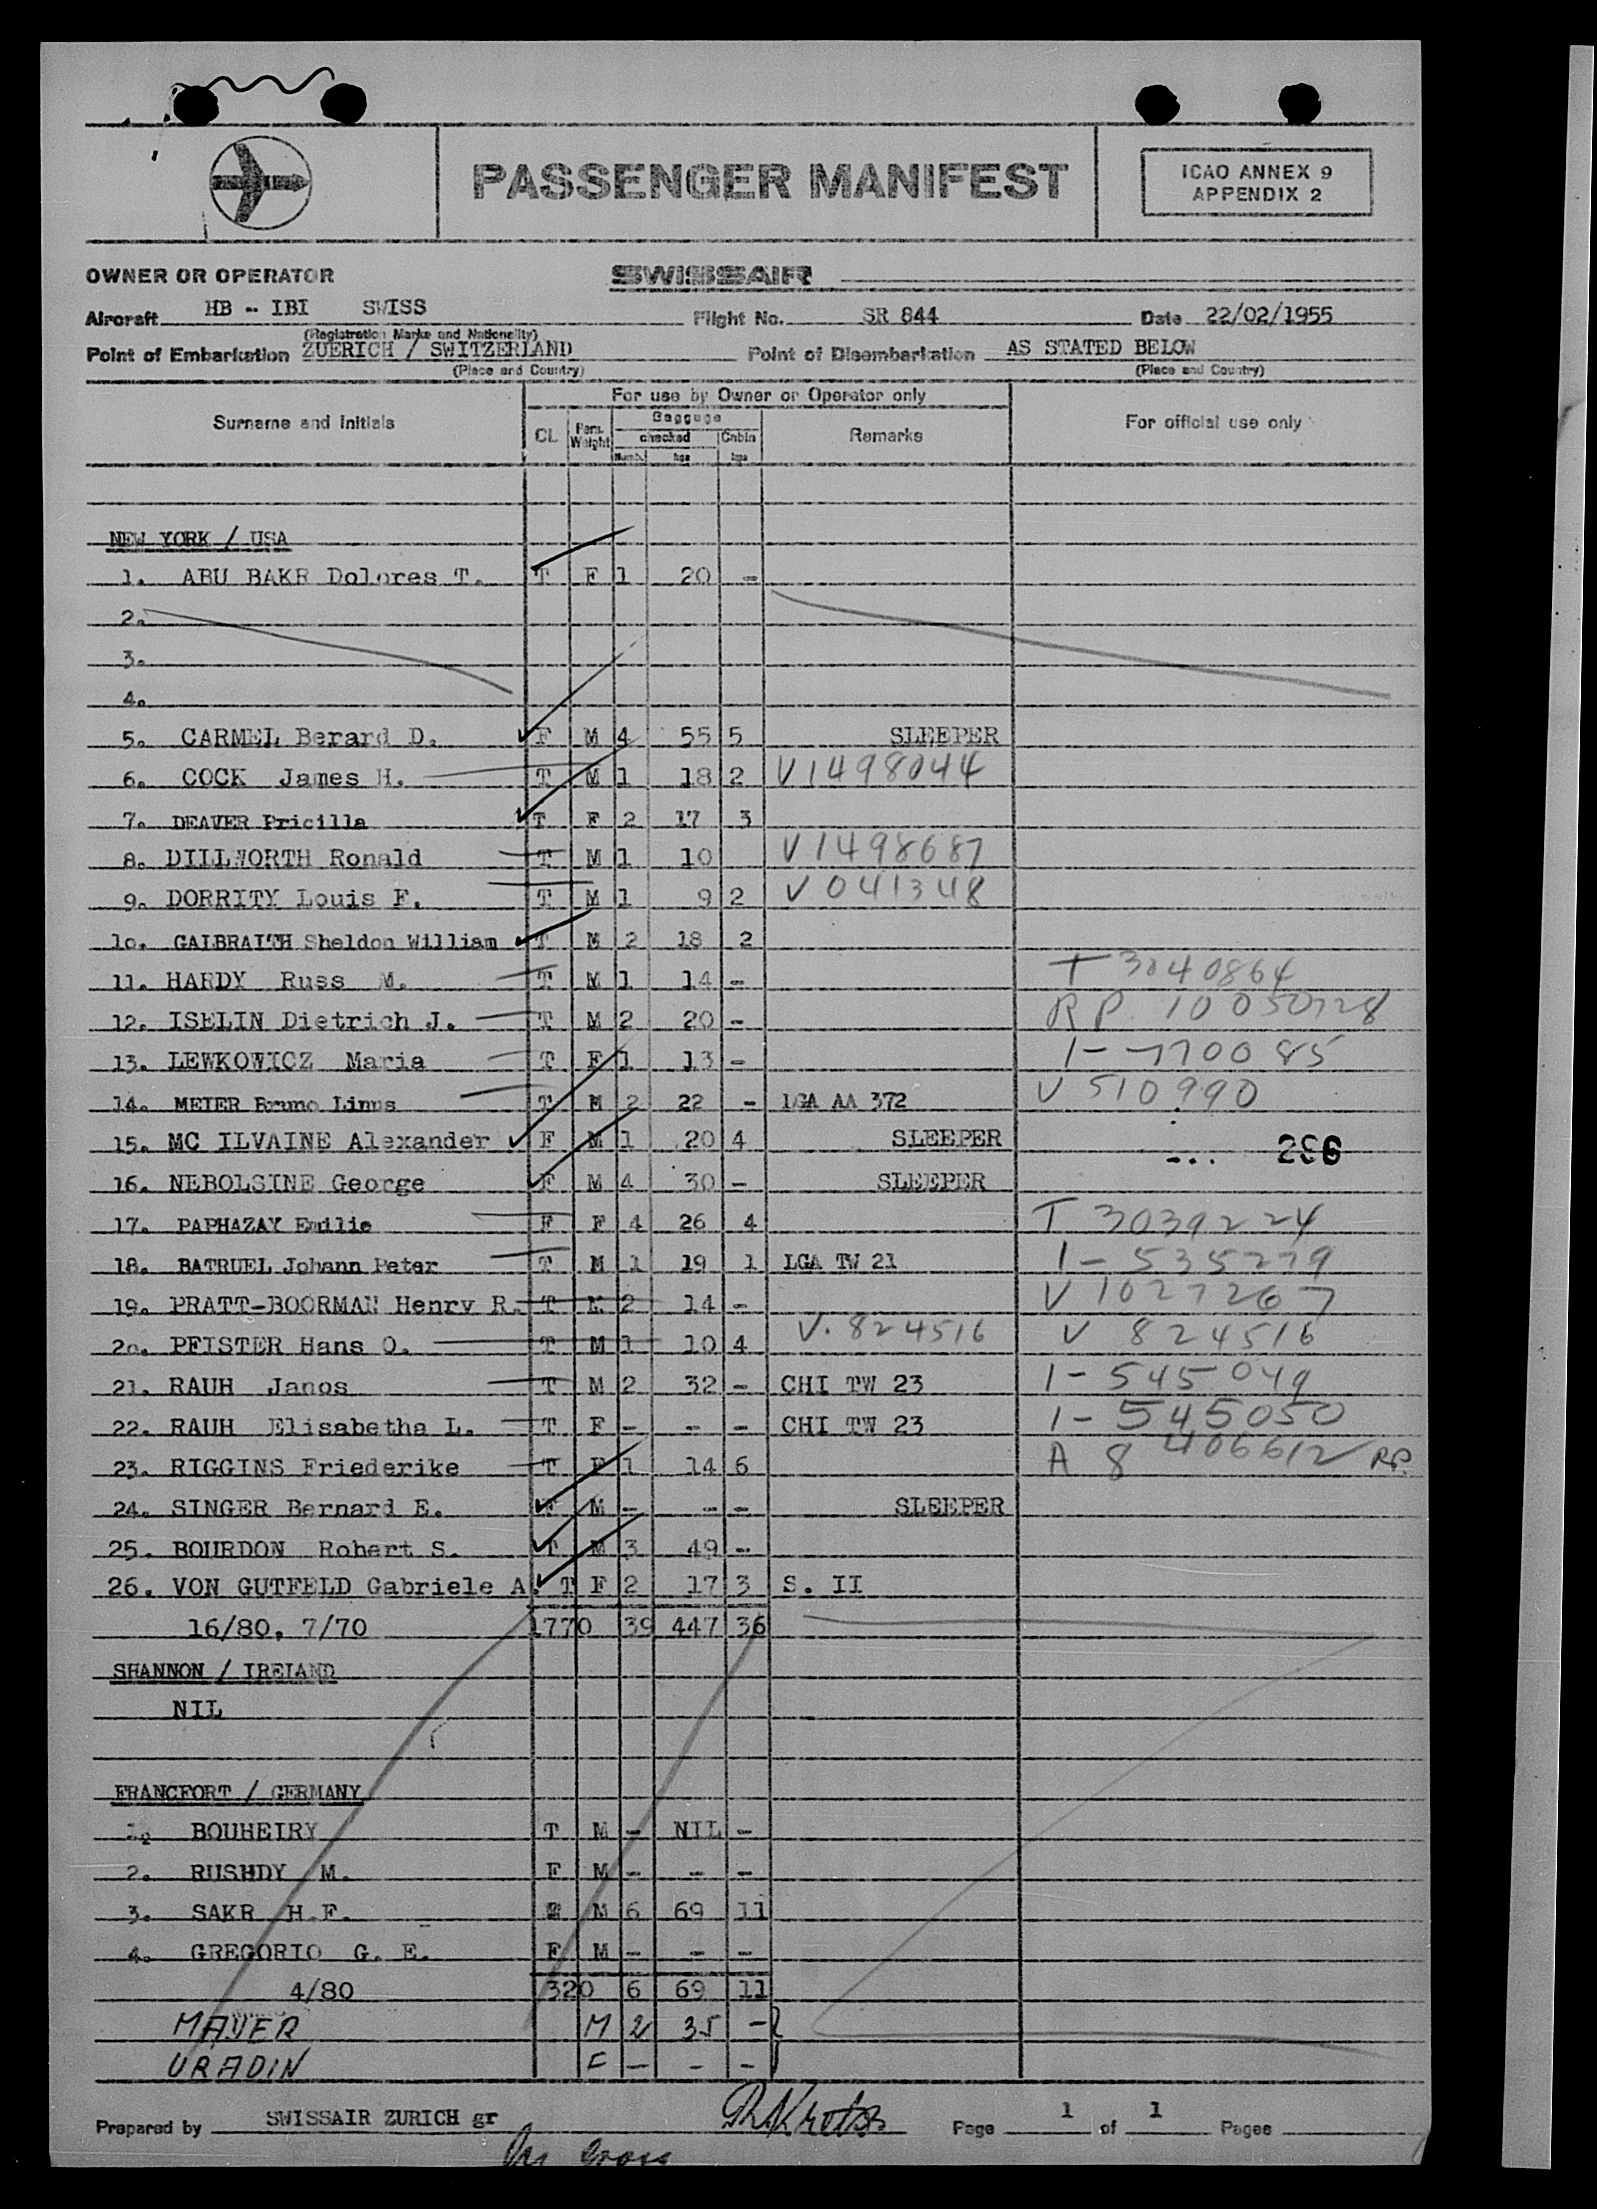 PASSENGER MANIFEST
ICAO ANNEX 9
APPENDIX 2
OWNER OR OPERATOR SWISSAIR
Aircraft HB - IBI SWISS Flight No. SR 844 Date 22/02/1955
(Registration Marks and Nationality)
Point of Embarkation ZUERICH / SWITZERLAND Point of Disembarkation AS STATED BELOW
(Place and Country) (Place and Country)
For use by Owner or Operator only
Surname and Initials CL Pers. Weight Baggage checked Numb. kgs Cabin kgs Remarks For official use only
NEW YORK / USA
1. ABU BAKR Dolores T. T F 1 20 -
2.
3.
4.
5. CARMEL Berard D. F M 4 55 5 SLEEPER
6. COCK James H. T M 1 18 2 V1498044
7. DEAVER Pricilla T F 2 17 3
8. DILLWORTH Ronald T M 1 10 V1498687
9. DORRITY Louis F. T M 1 9 2 V041348
10. GALBRAITH Sheldon William T M 2 18 2
11. HARDY Russ M. T M 1 14 - T 3040864
12. ISELIN Dietrich J. T M 2 20 - RP 10050728
13. LEWKOWICZ Maria T F 1 13 - 1-770085
14. MEIER Bruno Linus T M 2 22 - LGA AA 372 V 510990
15. MC ILVAINE Alexander F M 1 20 4 SLEEPER 296
16. NEBOLSINE George F M 4 30 - SLEEPER
17. PAPHAZAY Emilie F F 4 26 4 T 3039224
18. BATRUEL Johann Peter T M 1 19 1 LGA TW 21 1-535279
19. PRATT-BOORMAN Henry R. T M 2 14 - V 1027267
20. PFISTER Hans O. T M 1 10 4 V. 824516 V 824516
21. RAUH Janos T M 2 32 - CHI TW 23 1-545049
22. RAUH Elisabetha L. T F - - - CHI TW 23 1-545050
23. RIGGINS Friederike T F 1 14 6 A 8 406612 RP.
24. SINGER Bernard E. F M - - - SLEEPER
25. BOURDON Robert S. T M 3 49 -
26. VON GUTFELD Gabriele A. T F 2 17 3 S. II
16/80, 7/70 1770 39 447 36
SHANNON / IRELAND
NIL
FRANCFORT / GERMANY
1. BOUHEIRY T M - NIL -
2. RUSHDY M. F M - - -
3. SAKR H.F. M 6 69 11
4. GREGORIO G. E. F M - - -
4/80 320 6 69 11
MAYER M 2 35 -
URADIN F - - -
Prepared by SWISSAIR ZURICH gr Page 1 of 1 Pages